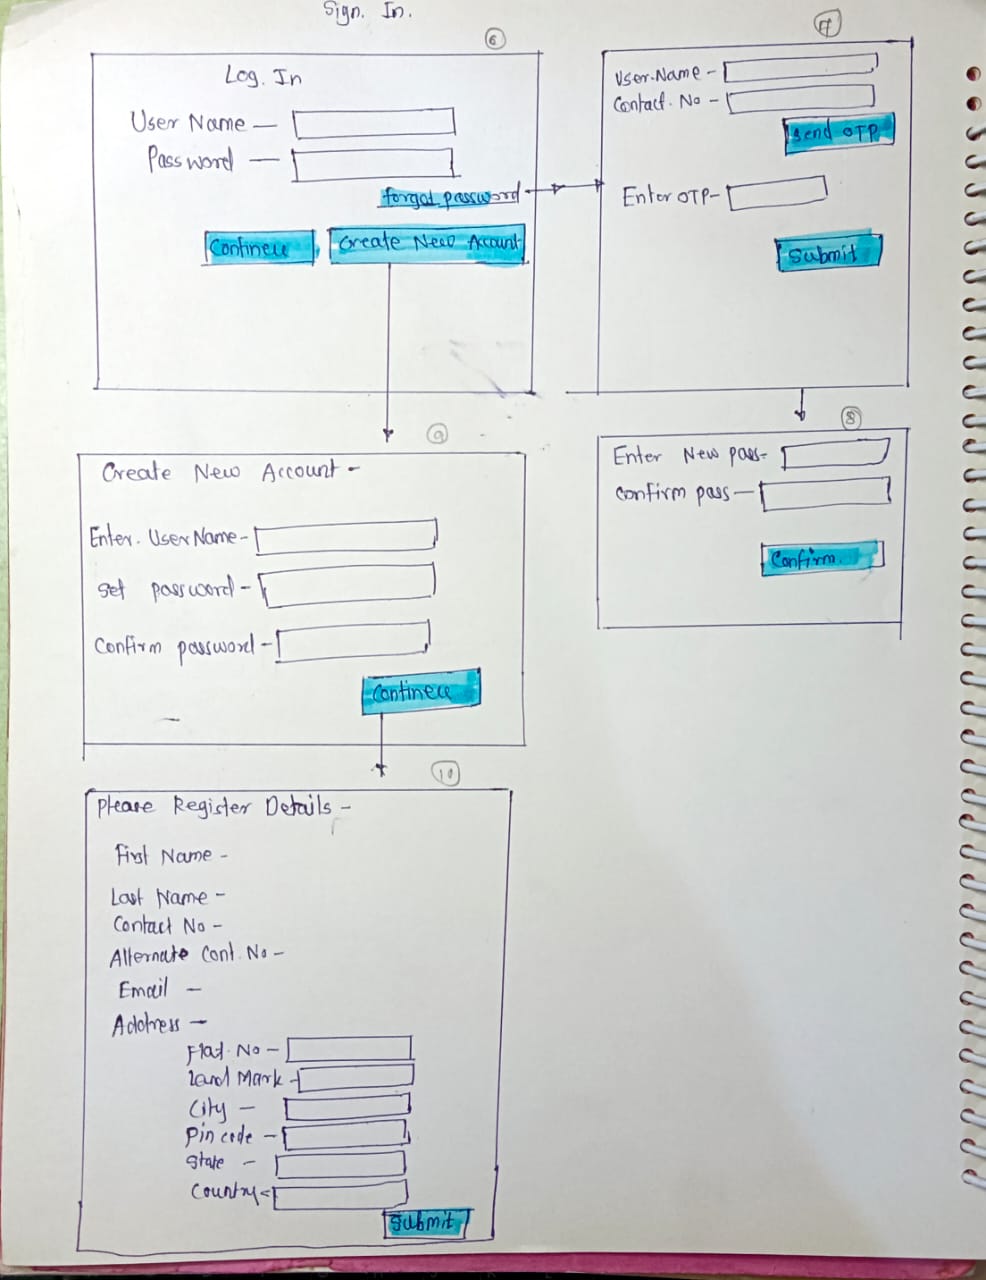 Sign. In.
6
Log. In
User Name —
Password —
forgot password
Contineu
Create New Account
7
User.Name -
Contact. No -
Send OTP
Enter OTP-
Submit
8
Enter New pass-
Confirm pass —
Confirm.
9
Create New Account -
Enter. User Name -
Set password -
Confirm password -
Contineu
10
Please Register Details -
First Name -
Last Name -
Contact No -
Alternate Cont. No -
Email -
Address -
Flat. No -
Land Mark -
City -
Pin code -
State -
Country -
Submit